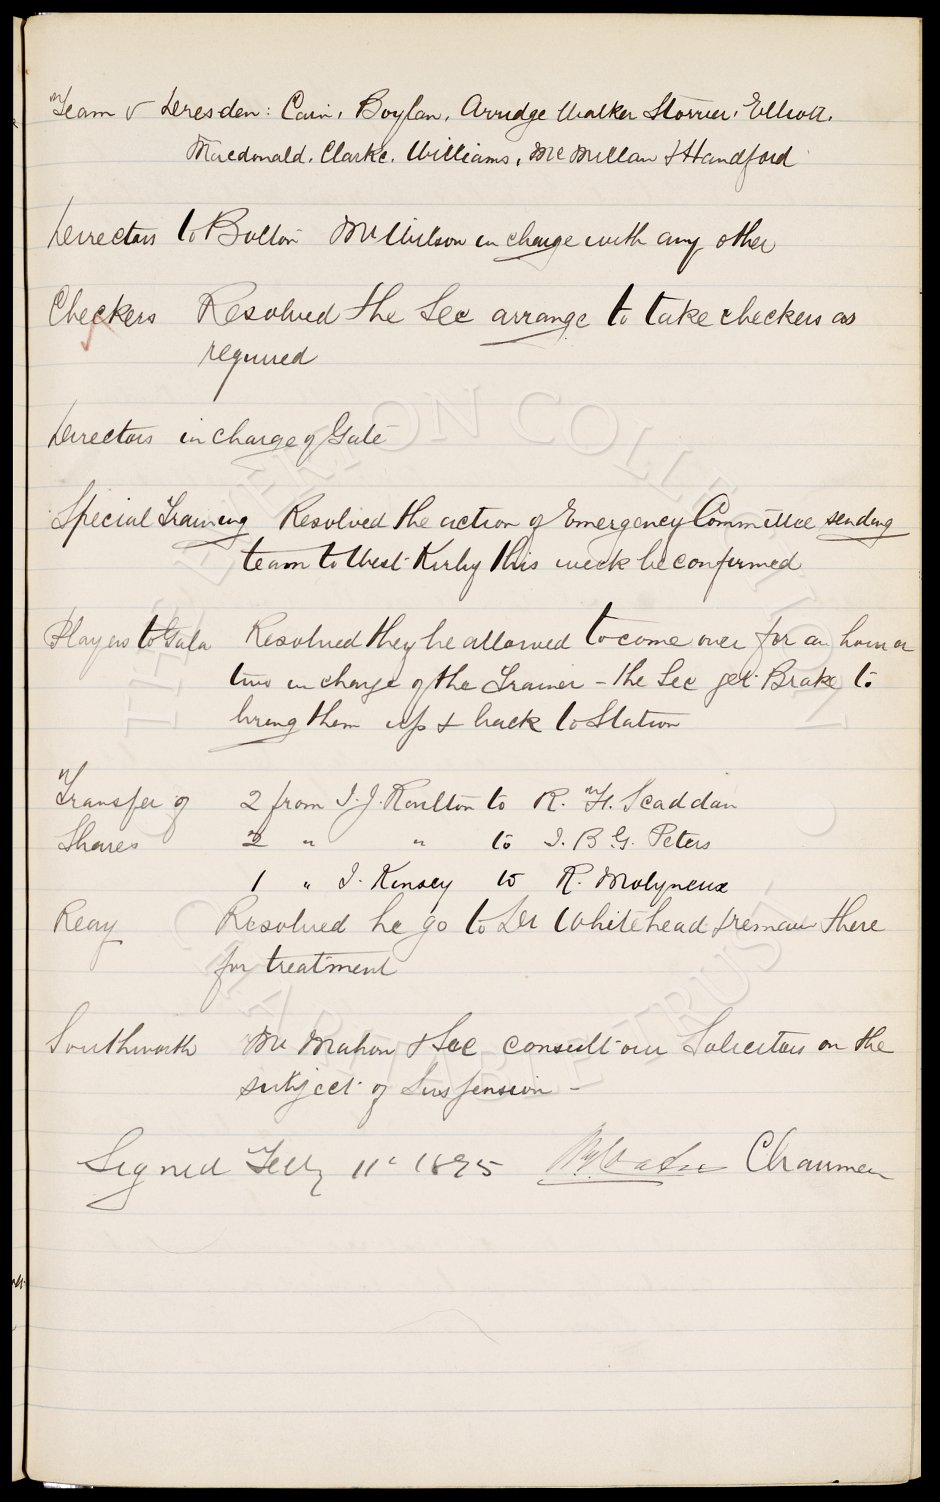 Team v Dresden: Cain, Boylan, Arridge Walker Storrier, Elliott,
Macdonald, Clarke, Williams, McMillan & Handford
Directors to Bolton Mr Wilson in charge with any other
Checkers Resolved the Sec arrange to take checkers as
required
Directors in charge of Gate
Special Training Resolved the action of Emergency Committee sending
team to West Kirby this week be confirmed
Players to Gala Resolved they be allowed to come over for an hour or
two in charge of the Trainer - the Sec get Brake to
bring them up & back to Station
Transfer of 2 from J.J. Roulton to R. H. Scaddan
Shares 2 " " to J. B. G. Peters
1 " J. Kinsey to R. Molyneux
Reay Resolved he go to Dr Whitehead & remain there
for treatment
Southworth Mr Mahon & Sec consult our Solicitors on the
subject of Suspension -
Signed Feby 11th 1895 Chairman
THE EVERTON COLLECTION
CHARITABLE TRUST